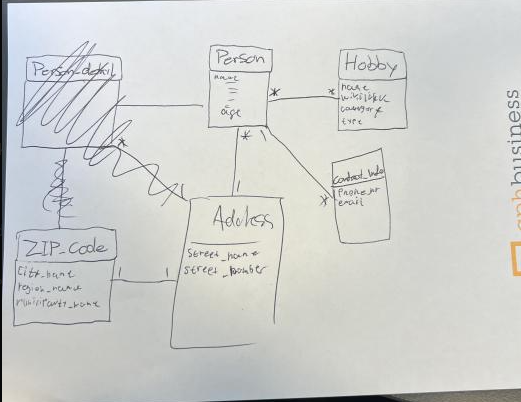 Person_detail
Person
name
age
*
Hobby
name
wikilink
category
type
*
*
*
contact_info
phone_nr
email
*
1
1
Address
street_name
street_number
ZIP_Code
City_name
region_name
municipality_name
1
1
business